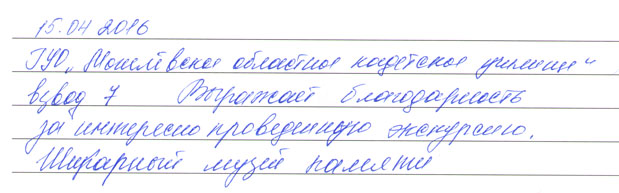 15.04.2016
ГУО „Могилёвское областное кадетское училище“
взвод 7 Выражает благодарность
за интересно проведенную экскурсию.
Шикарный музей памяти